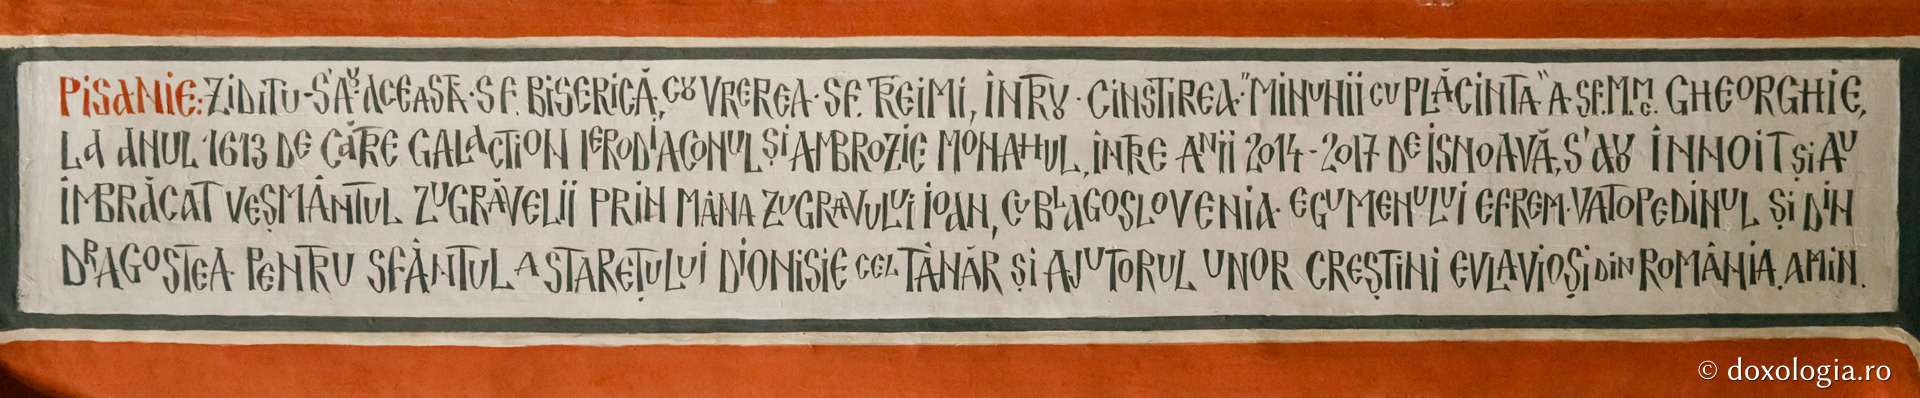 PISANIE: ZIDITU-S'AU ACEASTĂ SF. BISERICĂ, CU VREREA SF. TREIMI, ÎNTRU CINSTIREA "MINUNII CU PLĂCINTA" A SF. M. MC. GHEORGHIE,
LA ANUL 1613 DE CĂTRE GALACTION IERODIACONUL ȘI AMBROZIE MONAHUL, ÎNTRE ANII 2014-2017 DE ISNOAVĂ, S'AU ÎNNOIT ȘI AU
ÎMBRĂCAT VEȘMÂNTUL ZUGRĂVELII PRIN MÂNA ZUGRAVULUI IOAN, CU BLAGOSLOVENIA EGUMENULUI EFREM VATOPEDINUL ȘI DIN
DRAGOSTEA PENTRU SFÂNTUL A STAREȚULUI DIONISIE CEL TÂNĂR ȘI AJUTORUL UNOR CREȘTINI EVLAVIOȘI DIN ROMÂNIA. AMIN.
© doxologia.ro